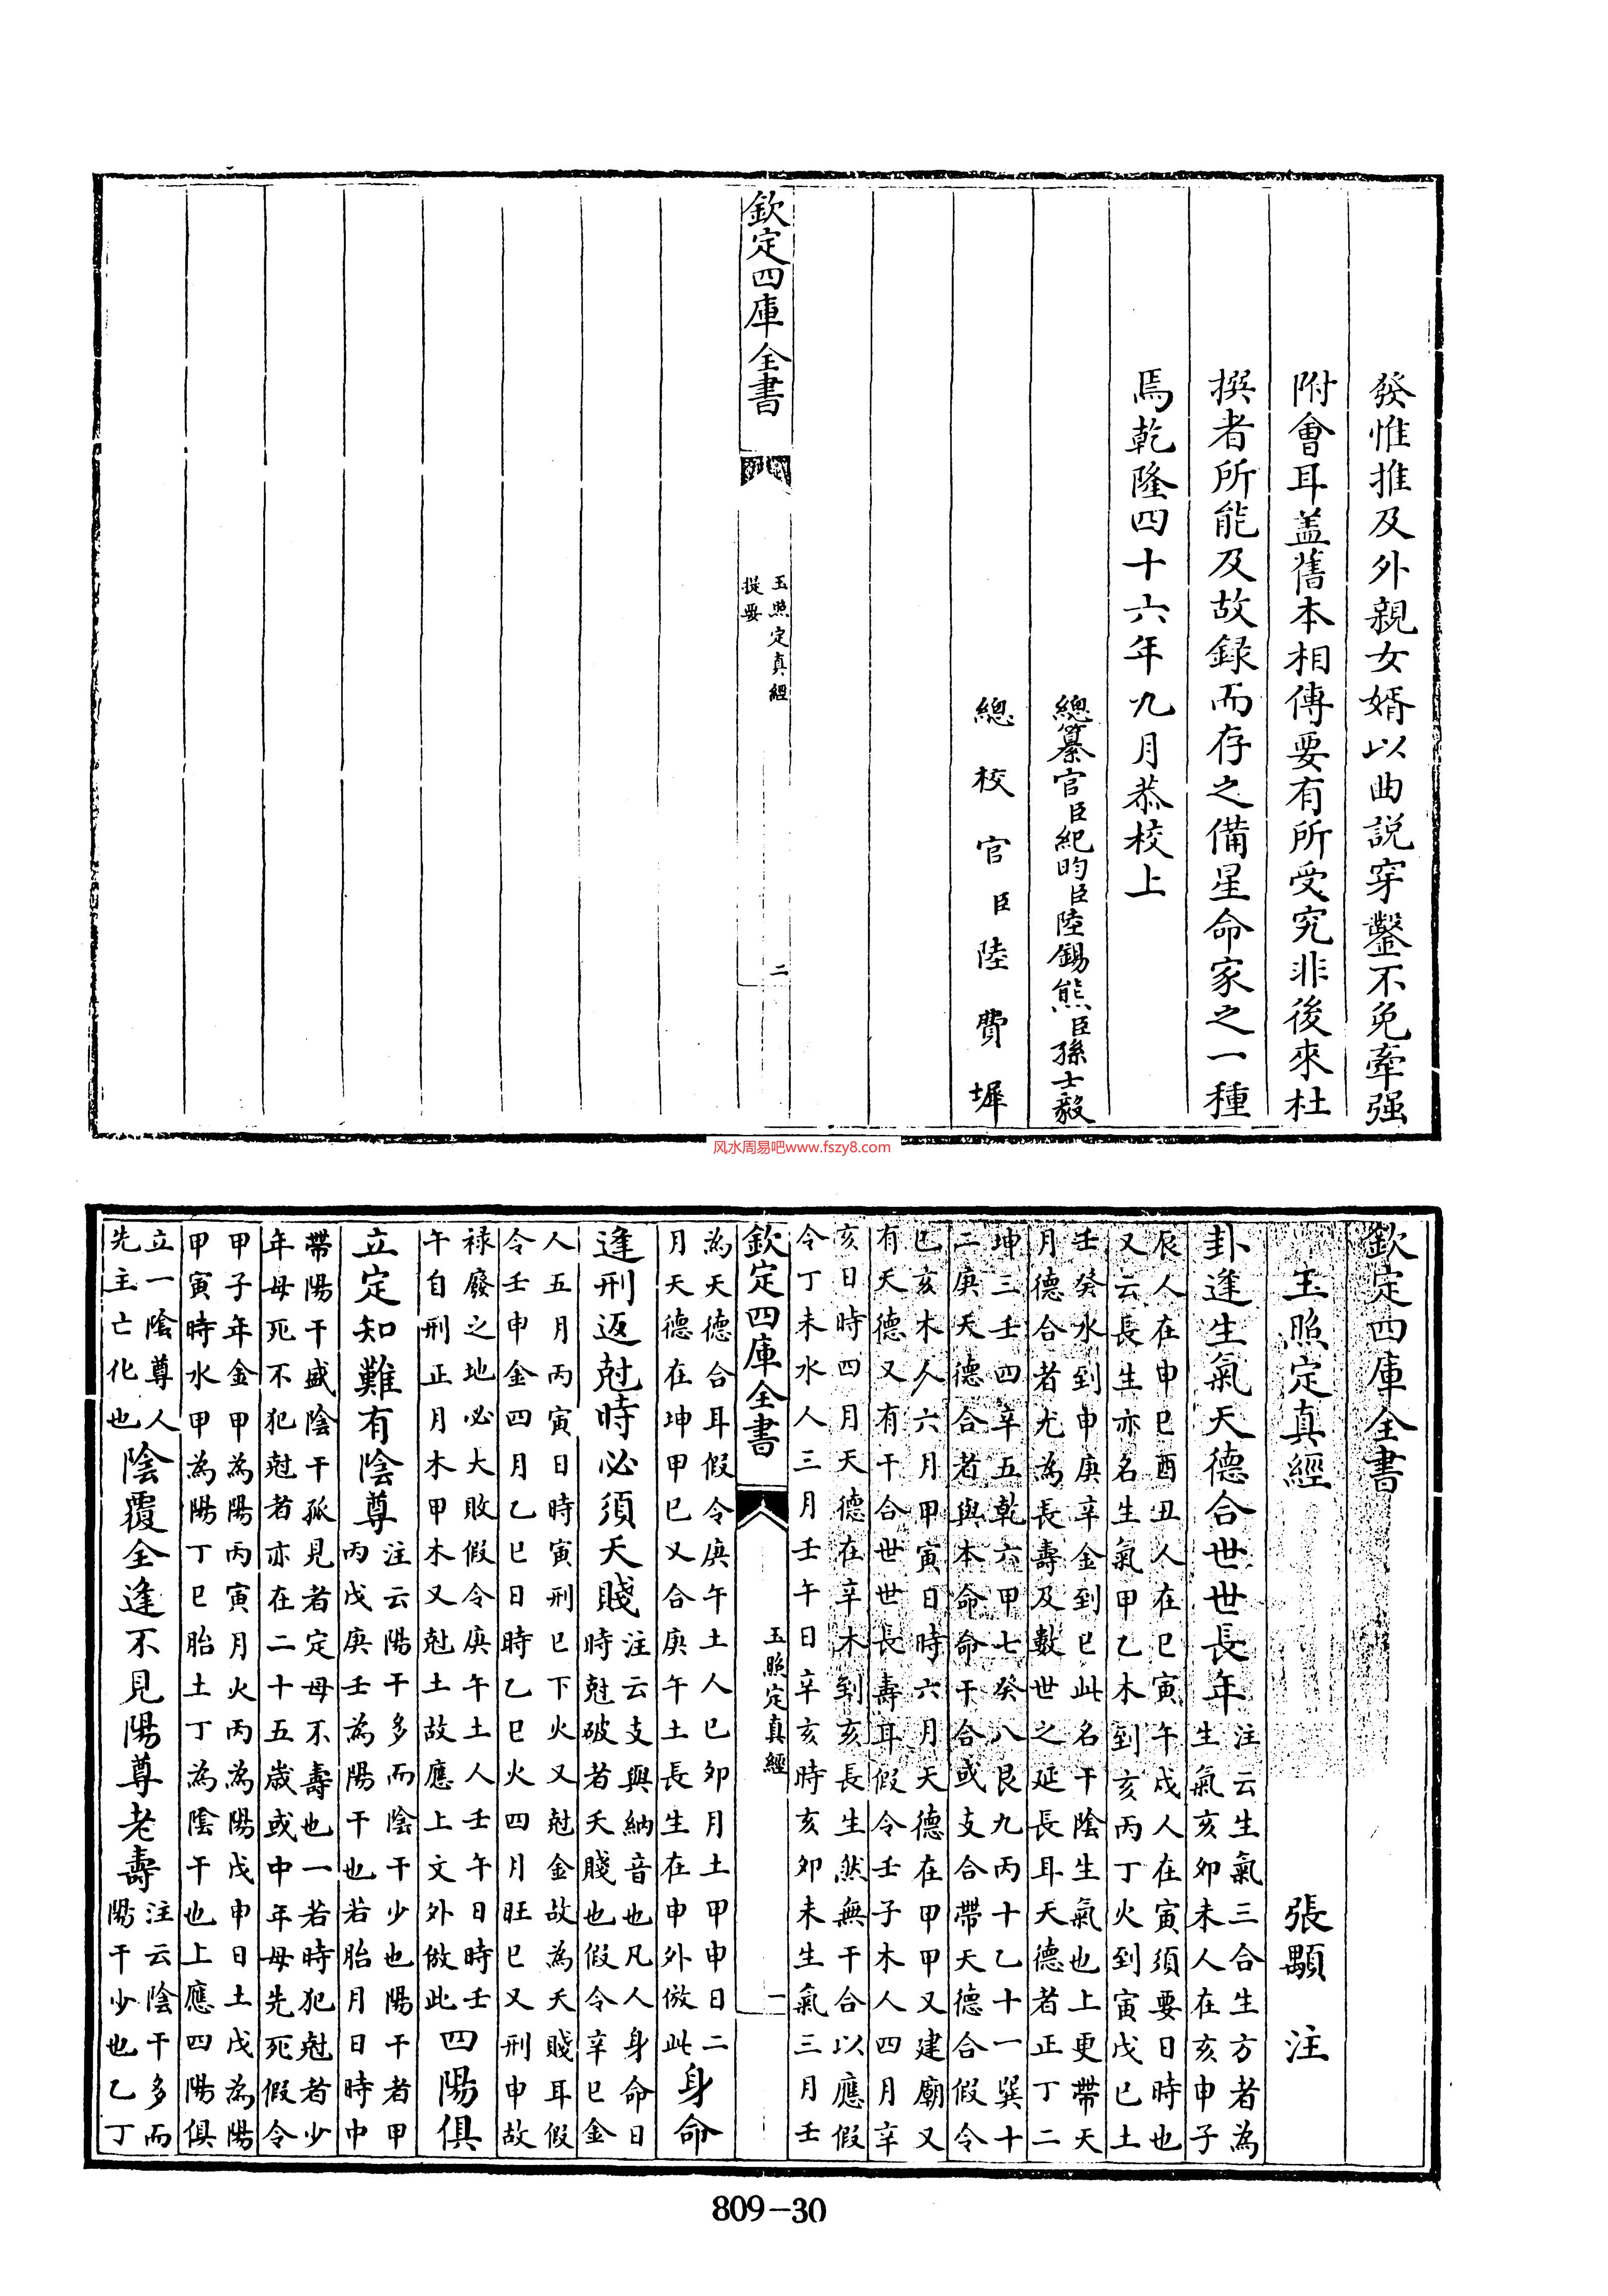 發惟推及外親女婿以曲説穿鑿不免牽强
附會耳盖舊本相傳要有所受究非後來杜
撰者所能及故録而存之備星命家之一種
焉乾隆四十六年九月恭校上
總纂官臣紀昀臣陸錫熊臣孫士毅
總校官臣陸費墀
欽定四庫全書
玉照定真經
提要
二
风水周易吧www.fszy8.com
欽定四庫全書
玉照定真經
張顒 注
卦逢生氣天德合世世長年
注云生氣三合生方者為
生氣亥卯未人在亥申子
辰人在申巳酉丑人在巳寅午戌人在寅須要日時也
又云長生亦名生氣甲乙木到亥丙丁火到寅戊巳土
壬癸水到申庚辛金到巳此名干陰生氣也上更帶天
月德合者尤為長壽及數世之延長耳天德者正丁二
坤三壬四辛五乾六甲七癸八艮九丙十乙十一巽十
二庚天德合者與本命命干合或支合帶天德合假令
巳亥木人六月甲寅日時六月天德在甲甲又建廟又
有天德又有干合世世長壽耳假令壬子木人四月辛
亥日時四月天德在辛木到亥長生然無干合以應假
令丁未水人三月壬午日辛亥時亥卯未生氣三月壬
欽定四庫全書
玉照定真經
一
為天德合耳假令庚午土人已卯月土甲申日二
月天德在坤甲巳又合庚午土長生在申外倣此
身命
逢刑返尅時必須夭賤
注云支與納音也凡人身命日
時尅破者夭賤也假令辛巳金
人五月丙寅日時寅刑巳下火又尅金故為夭賤耳假
令壬申金四月乙巳日時乙巳火四月旺巳又刑申故
禄廢之地必大敗假令庚午土人壬午日時壬
午自刑正月木甲木又尅土故應上文外倣此
四陽俱
立定知難有陰尊
注云陽干多而陰干少也陽干者甲
丙戊庚壬為陽干也若胎月日時中
帶陽干盛陰干孤見者定母不壽也一若時犯尅者少
年母死不犯尅者亦在二十五歲或中年母先死假令
甲子年金甲為陽丙寅月火丙為陽戊申日土戊為陽
甲寅時水甲為陽丁巳胎土丁為陰干也上應四陽俱
立一陰尊人
先主亡化也
陰覆全逢不見陽尊老壽
注云陰干多而
陽干少也乙丁
809-30